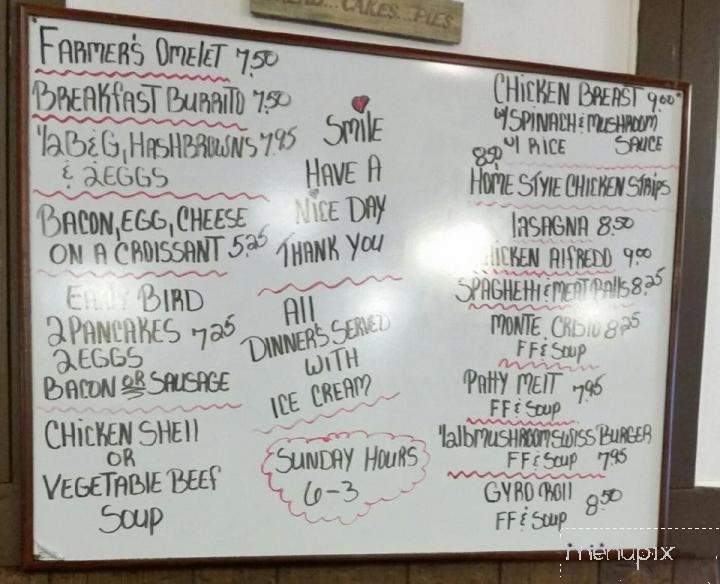 CAKES...PIES
FARMER'S OMELET 7.50
BREAKFAST BURRITO 7.50
1/2 B&G, HASHBROWNS 7.95
& 2EGGS
BACON, EGG, CHEESE
ON A CROISSANT 5.25
EARLY BIRD
2 PANCAKES 7.25
2EGGS
BACON OR SAUSAGE
CHICKEN SHELL
OR
VEGETABLE BEEF
SOUP
SMILE
HAVE A
NICE DAY
THANK YOU
All
DINNER'S SERVED
WITH
ICE CREAM
SUNDAY HOURS
6-3
CHICKEN BREAST 9.00
W/ SPINACH & MUSHROOM
W/ RICE SAUCE
8.50
HOME STYLE CHICKEN STRIPS
LASAGNA 8.50
CHICKEN ALFREDO 9.00
SPAGHETTI & MEAT BALLS 8.25
MONTE CRISTO 8.25
FF & SOUP
PATTY MELT 7.95
FF & SOUP
MUSHROOM SWISS BURGER
FF & SOUP 7.95
GYRO ROLL 8.50
FF & SOUP
menupix